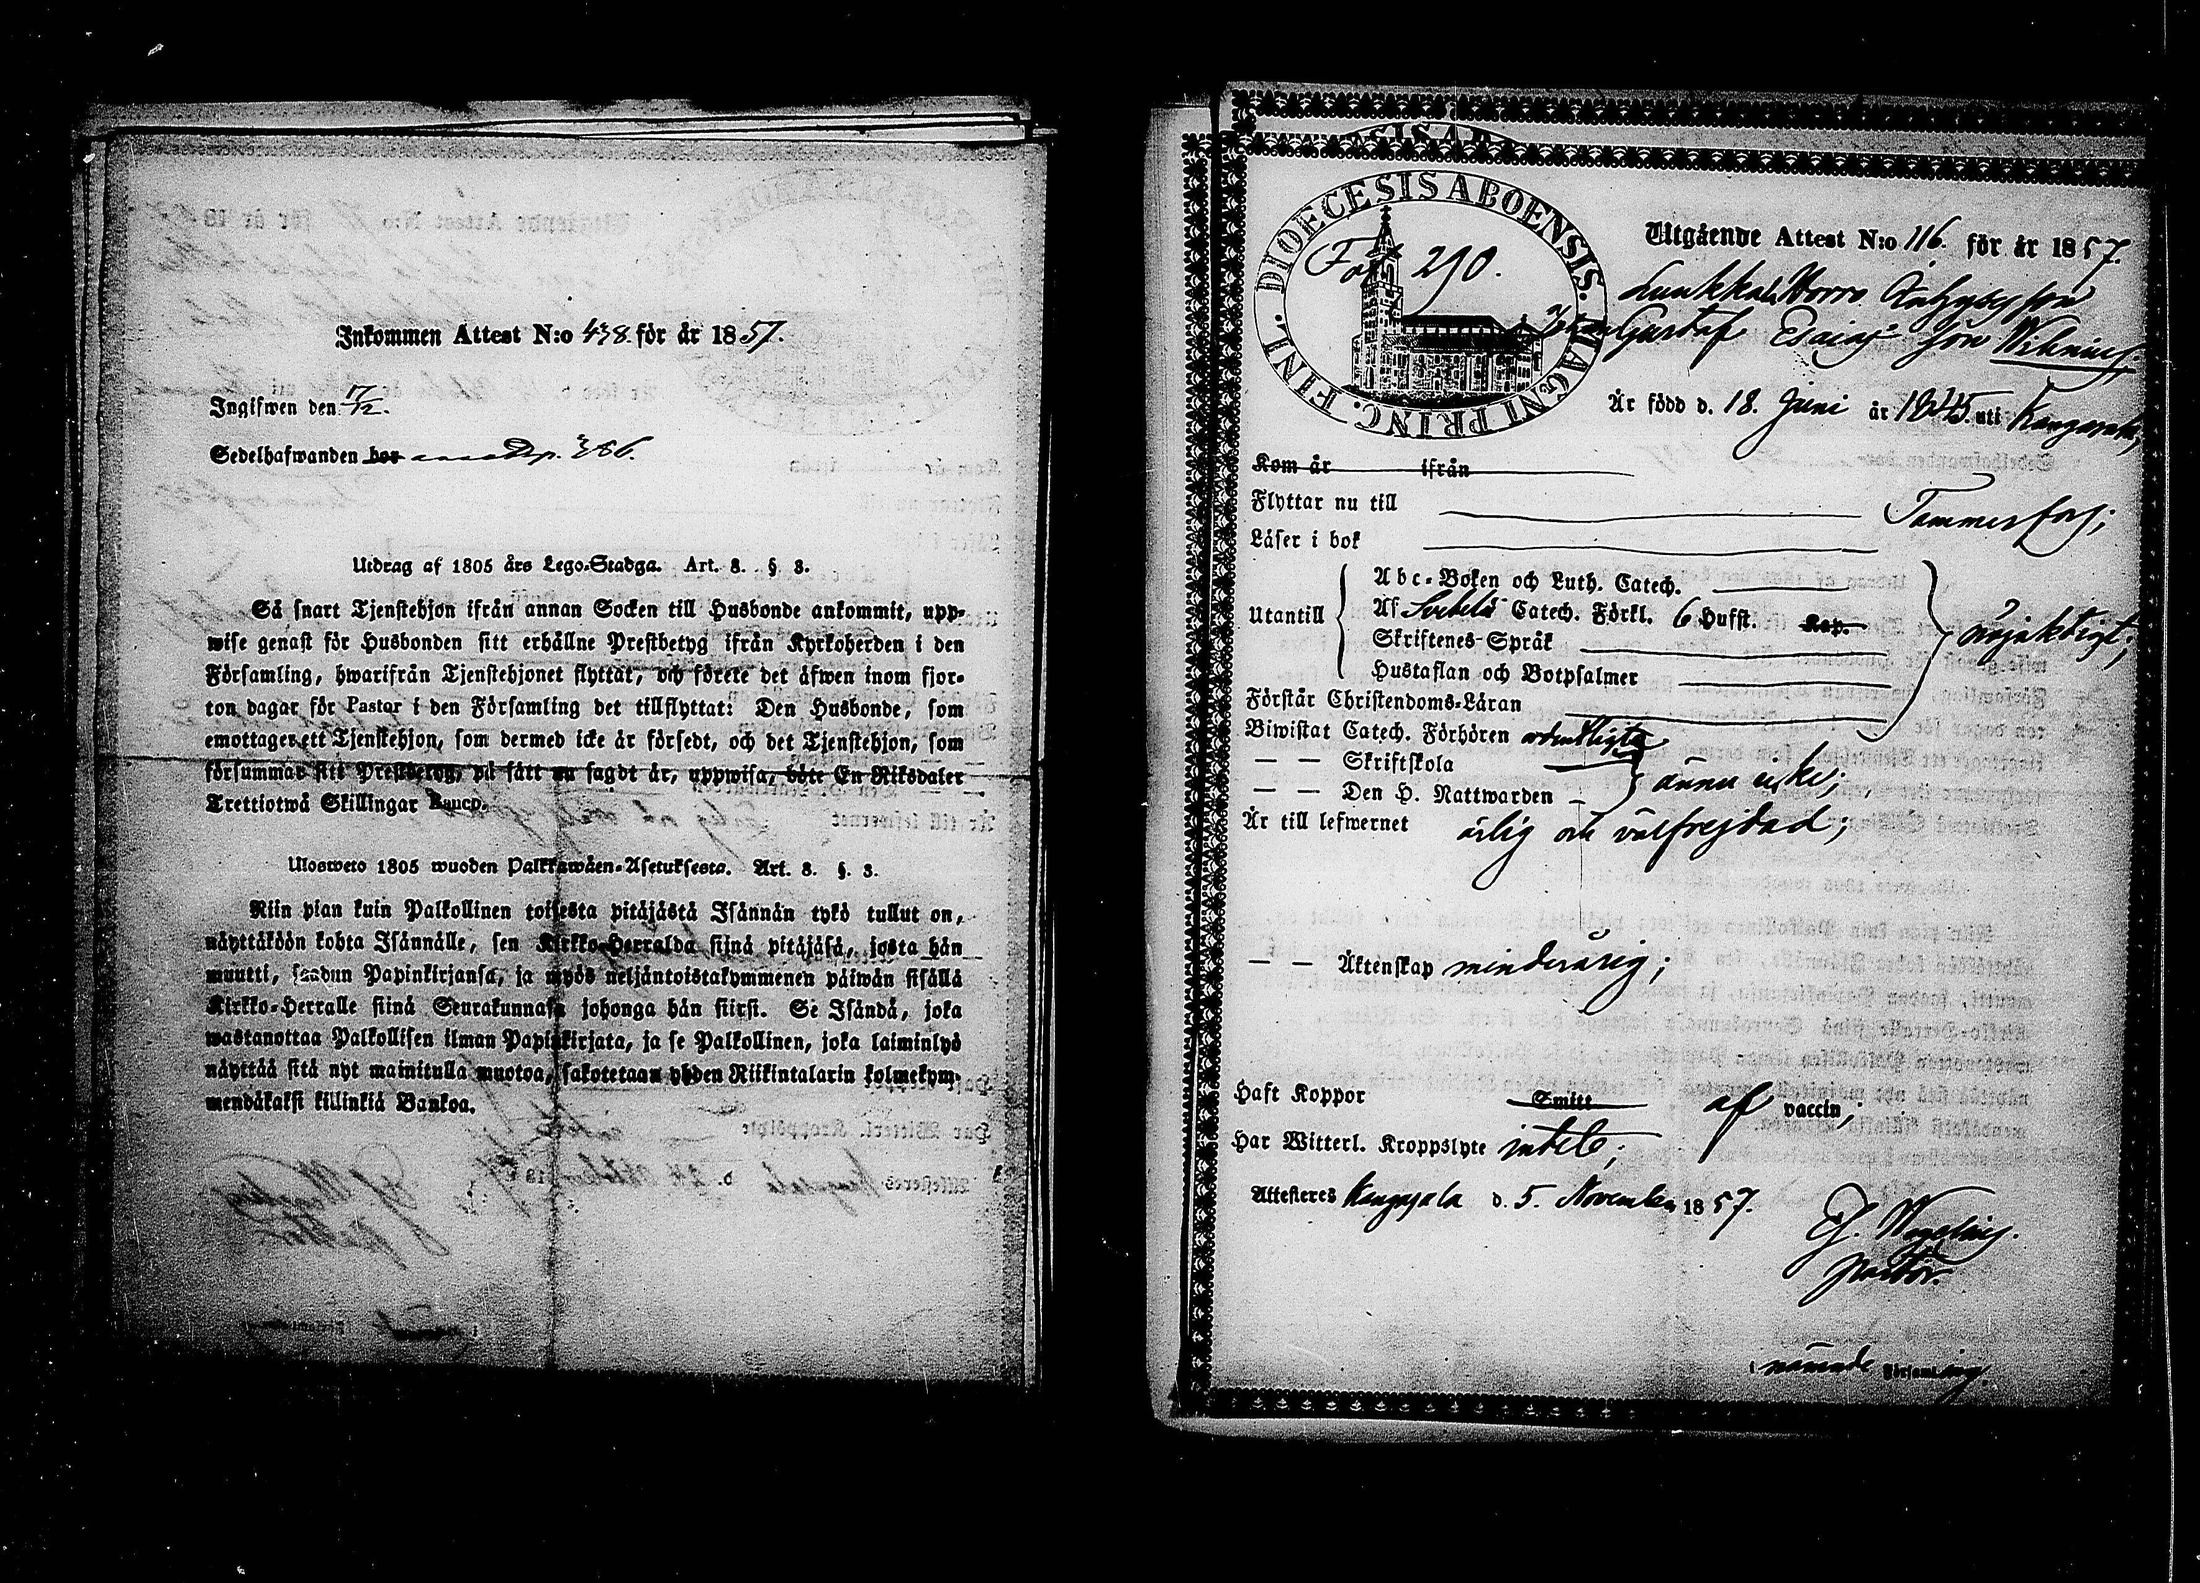 Inkommen Attest N:o 438. för år 1857.
Ingifwen den 17/12.
Sedelhafwanden bor pp. 386.
Utdrag af 1805 års Lego-Stadga. Art. 8. § 8.
Så snart Tjenstehjon ifrån annan Socken till Husbonde ankommit, upp-
wise genast för Husbonden sitt erhållne Prestbetyg ifrån Kyrkoherden i den
Församling, hwarifrån Tjenstehjonet flyttat, och förete det äfwen inom fjor-
ton dagar för Pastor i den Församling det tillflyttat: Den Husbonde, som
emottager ett Tjenstehjon, som dermed icke är försedt, och det Tjenstehjon, som
försummar sitt Prestbetyg, på sätt nu sagdt är, uppwisa, böte En Riksdaler
Trettiotwå Skillingar Banco.
Ulosweto 1805 wuoden Palkkawäen-Asetuksesta. Art. 8. §. 3.
Niin pian kuin Palkollinen toisesta pitäjästä Isännän tykö tullut on,
näyttäköön kohta Isännälle, sen Kirkko-Herralda siinä pitäjäsä, josta hän
muutti, saadun Papinkirjansa, ja myös neljäntoistakymmenen päiwän sisällä
Kirkko-Herralle siinä Seurakunnasa johonga hän siirsi. Se Isändä, joka
wastanottaa Palkollisen ilman Papinkirjata, ja se Palkollinen, joka laiminlyö
näyttää sitä nyt mainitulla muotoa, sakotetaan yhden Riikintalarin kolmekym-
mendäkaksi killinkiä Bankoa.
DIOECESIS ABOENSIS. MAGNI PRINC. FINL.
Fol 290.
Utgående Attest N:o 116. för år 1857.
Gustaf Esaias son
Är född d. 18. Juni år 1845. uti Kangasala,
Kom år ifrån
Flyttar nu till Tammerfors;
Läser i bok
Utantill
Abc-Boken och Luth. Catech.
Af Svebelii Catech. Förkl. 6 Hufst. Kap.
Skriftenes-Språk
Hustaflan och Botpsalmer
nöjaktigt;
Förstår Christendoms-Läran
Biwistat Catech. Förhören ordentligt
— — Skriftskola
— — Den H. Nattwarden
ännu icke;
Är till lefwernet ärlig och välfrejdad;
— — Äktenskap minderårig;
Haft Koppor Smitt af vaccin;
Har Witterl. Kroppslyte intet;
Attesteres Kangasala d. 5. November 1857.
Pastor.
i nämnde Församling.